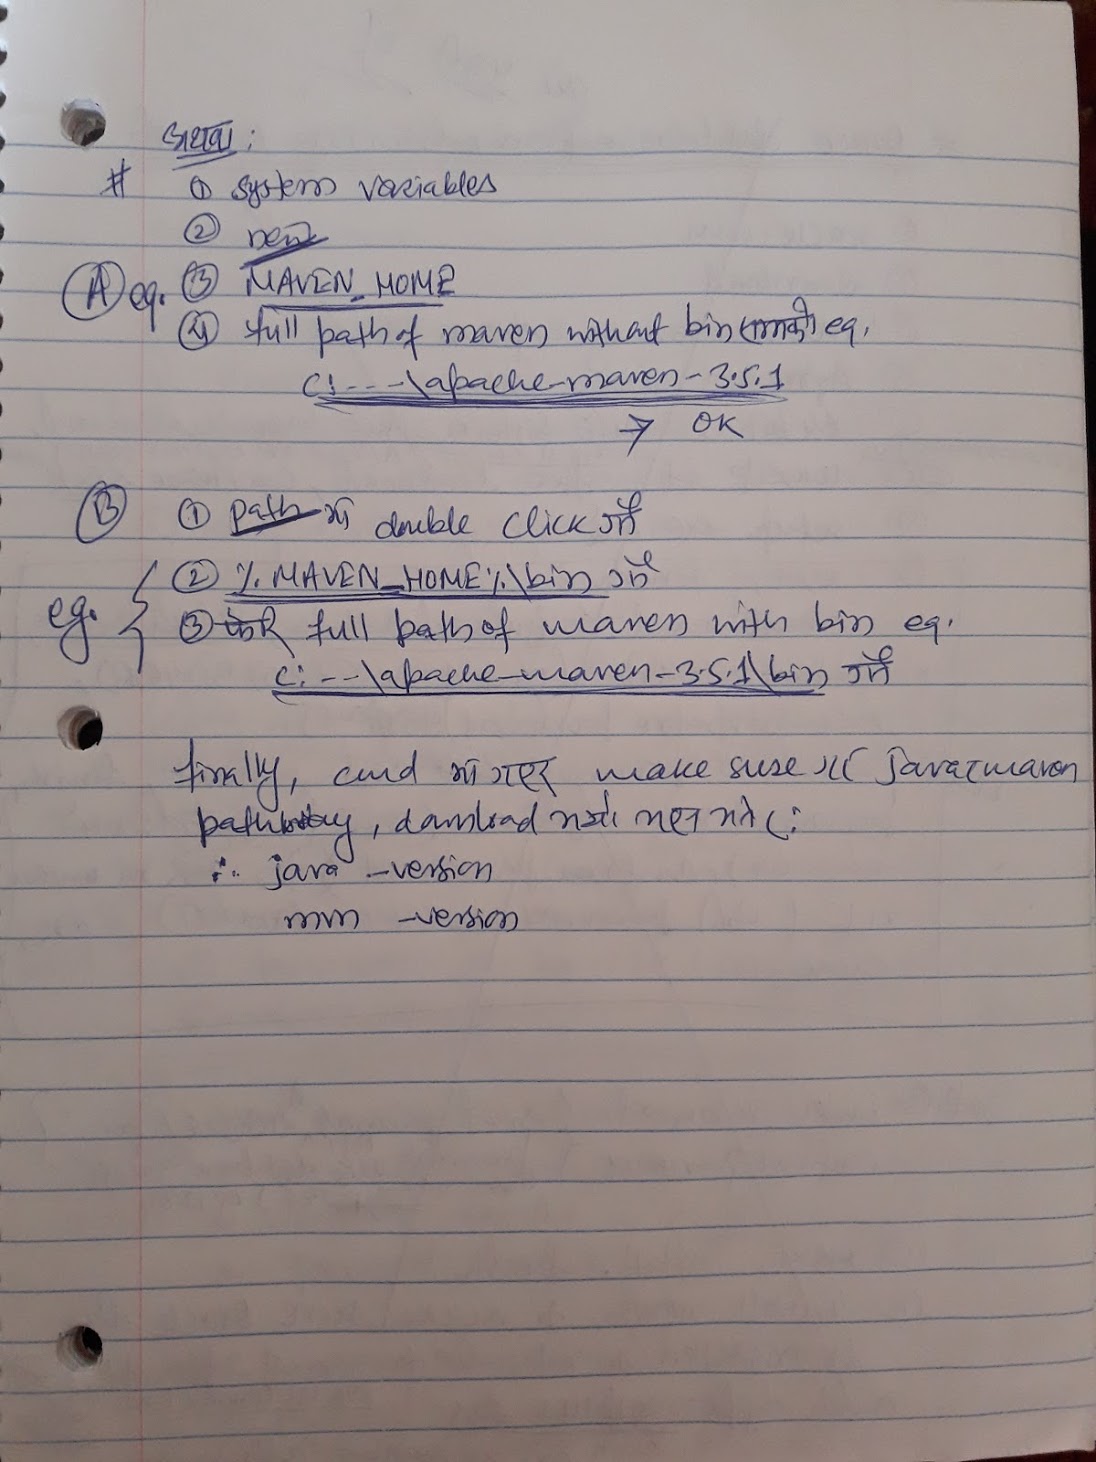 अथवा :
# ① system variables
② new
Ⓐ eg. ③ MAVEN_HOME
④ full path of maven without bin eg.
C:---\apache-maven-3.5.1
→ OK
Ⓑ ① path मा double click गर्ने
② %MAVEN_HOME%\bin गर्ने
eg. { ③ full path of maven with bin eg.
C:--\apache-maven-3.5.1\bin गर्ने
finally, cmd मा गएर make sure गर्ने java र maven
path
∴ java -version
mvn -version